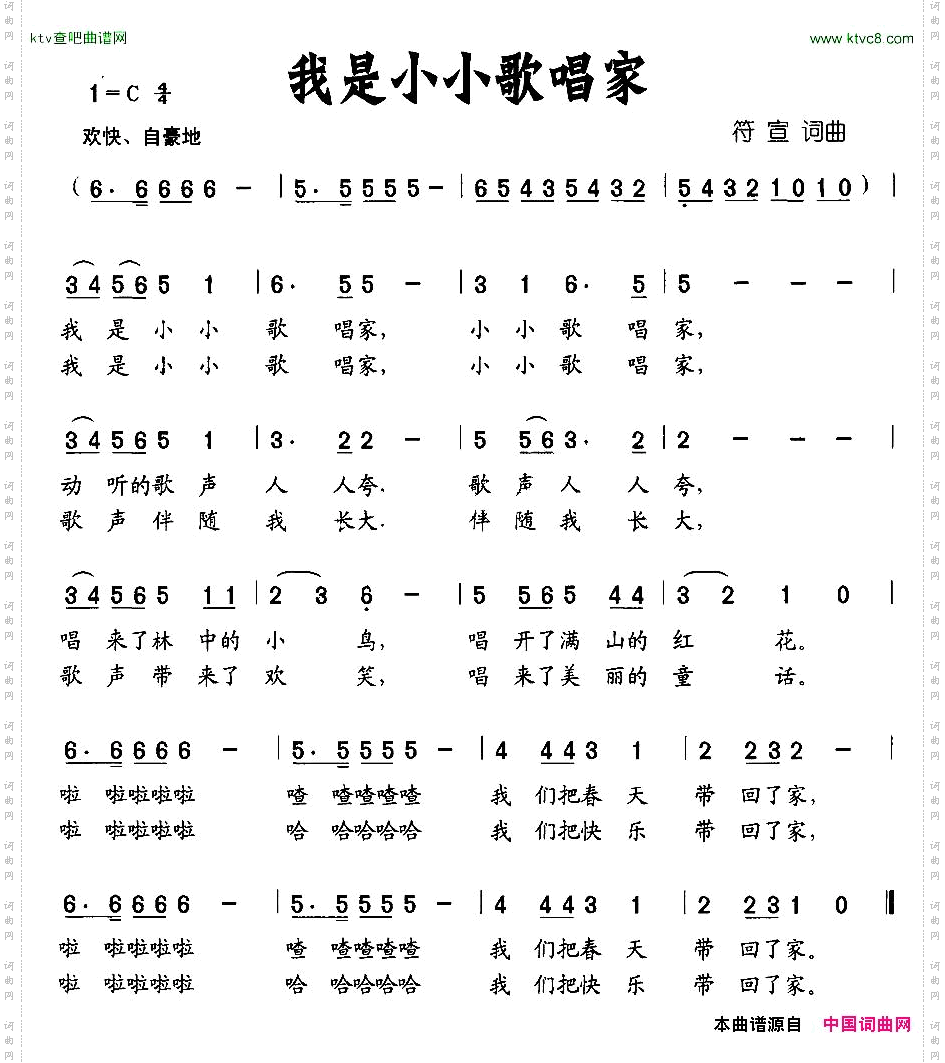 ktv查吧曲谱网 www.ktvc8.com
我是小小歌唱家
1=C 4/4
欢快、自豪地
符宣 词曲
（6. 6 6 6 6 - | 5. 5 5 5 5 - | 6 5 4 3 5 4 3 2 | 5 4 3 2 1 0 1 0） |
3 4 5 6 5 1 | 6. 5 5 - | 3 1 6. 5 | 5 - - - |
我是小小歌唱家，小小歌唱家，
我是小小歌唱家，小小歌唱家，
3 4 5 6 5 1 | 3. 2 2 - | 5 5 6 3. 2 | 2 - - - |
动听的歌声人人夸．歌声人人夸，
歌声伴随我长大．伴随我长大，
3 4 5 6 5 1 1 | 2 3 6 - | 5 5 6 5 4 4 | 3 2 1 0 |
唱来了林中的小鸟，唱开了满山的红花。
歌声带来了欢笑，唱来了美丽的童话。
6. 6 6 6 6 - | 5. 5 5 5 5 - | 4 4 4 3 1 | 2 2 3 2 - |
啦啦啦啦啦 喳喳喳喳喳 我们把春天带回了家，
啦啦啦啦啦 哈哈哈哈哈 我们把快乐带回了家，
6. 6 6 6 6 - | 5. 5 5 5 5 - | 4 4 4 3 1 | 2 2 3 1 0 ‖
啦啦啦啦啦 喳喳喳喳喳 我们把春天带回了家。
啦啦啦啦啦 哈哈哈哈哈 我们把快乐带回了家。
本曲谱源自 中国词曲网